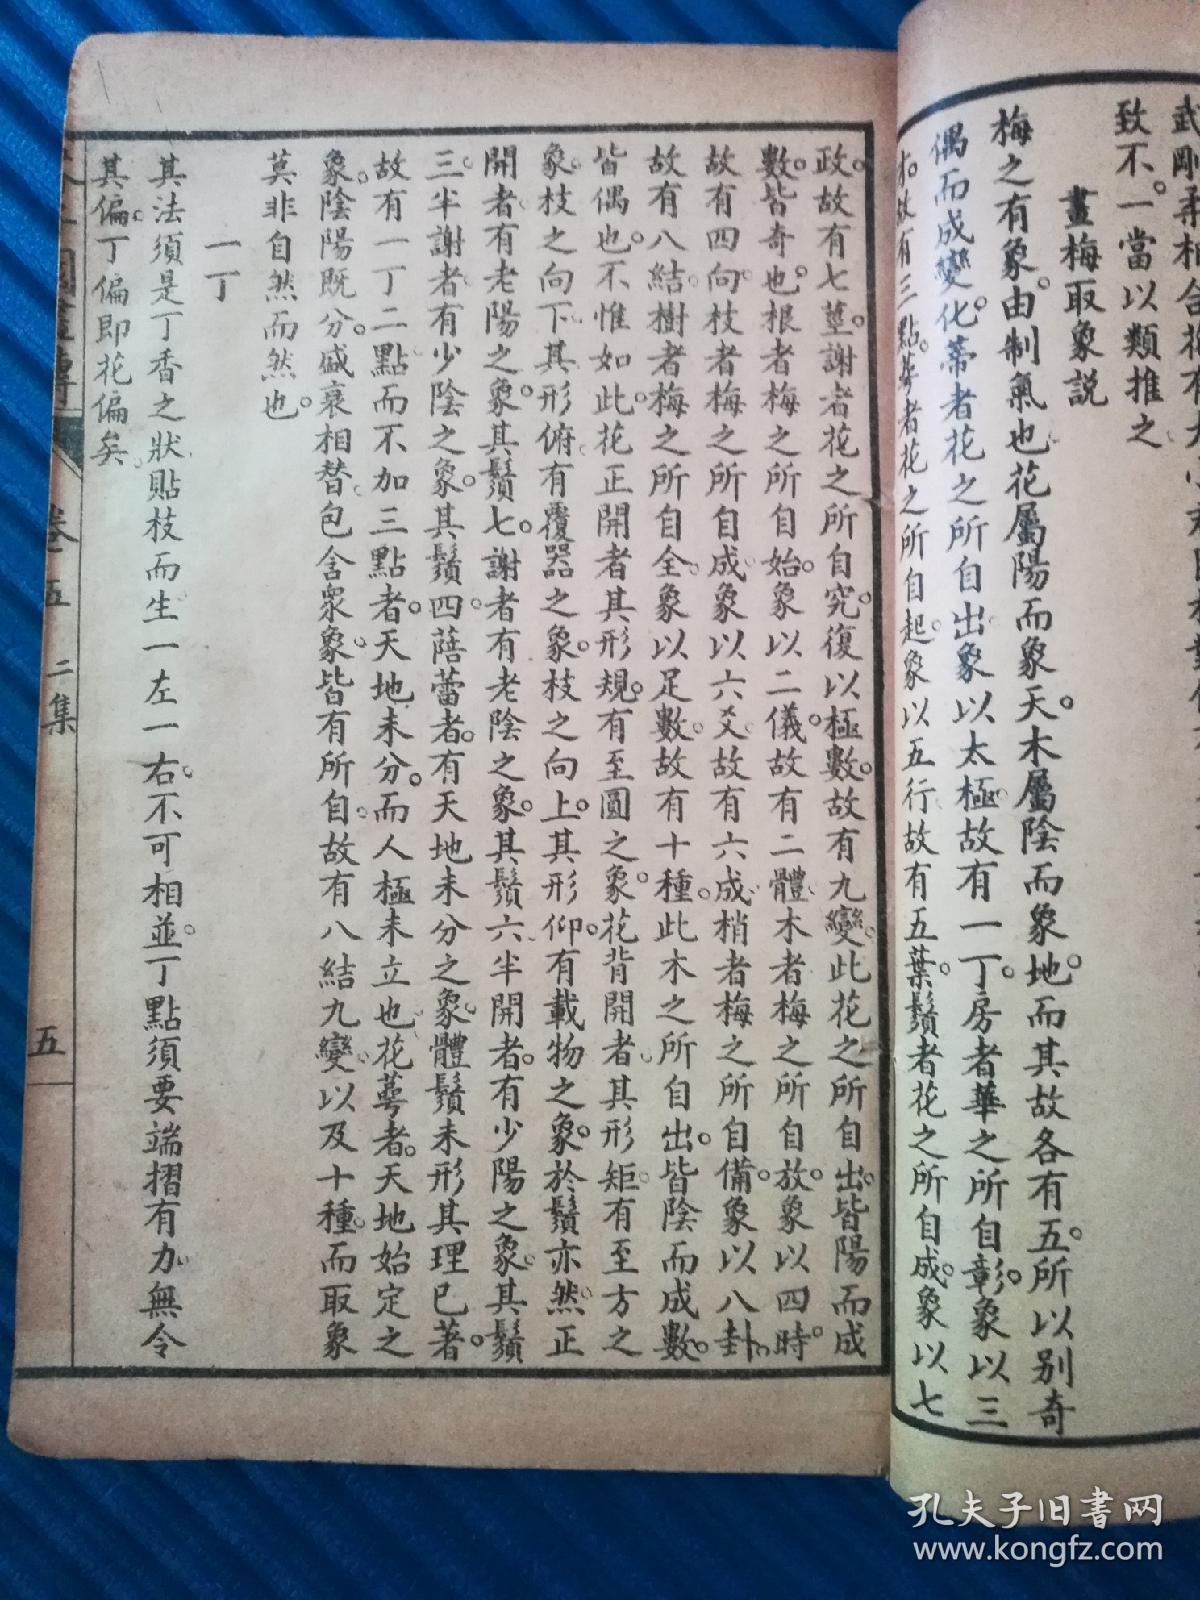 致不一當以類推之
畫梅取象説
梅之有象由制氣也花屬陽而象天木屬陰而象地而其故各有五所以别奇
偶而成變化蒂者花之所自出象以太極故有一丁房者華之所自彰象以三
才故有三點萼者花之所自起象以五行故有五葉鬚者花之所自成象以七
政故有七莖謝者花之所自究復以極數故有九變此花之所自出皆陽而成
數皆奇也根者梅之所自始象以二儀故有二體木者梅之所自放象以四時
故有四向枝者梅之所自成象以六爻故有六成梢者梅之所自備象以八卦
故有八結樹者梅之所自全象以足數故有十種此木之所自出皆陰而成數
皆偶也不惟如此花正開者其形規有至圓之象花背開者其形矩有至方之
象枝之向下其形俯有覆器之象枝之向上其形仰有載物之象於鬚亦然正
開者有老陽之象其鬚七謝者有老陰之象其鬚六半開者有少陽之象其鬚
三半謝者有少陰之象其鬚四蓓蕾者有天地未分之象體鬚未形其理已著
故有一丁二點而不加三點者天地未分而人極未立也花萼者天地始定之
象陰陽既分盛衰相替包含眾象皆有所自故有八結九變以及十種而取象
莫非自然而然也
一丁
其法須是丁香之狀貼枝而生一左一右不可相並丁點須要端摺有力無令
其偏丁偏即花偏矣
卷五 二集
五
孔夫子旧书网
www.kongfz.com